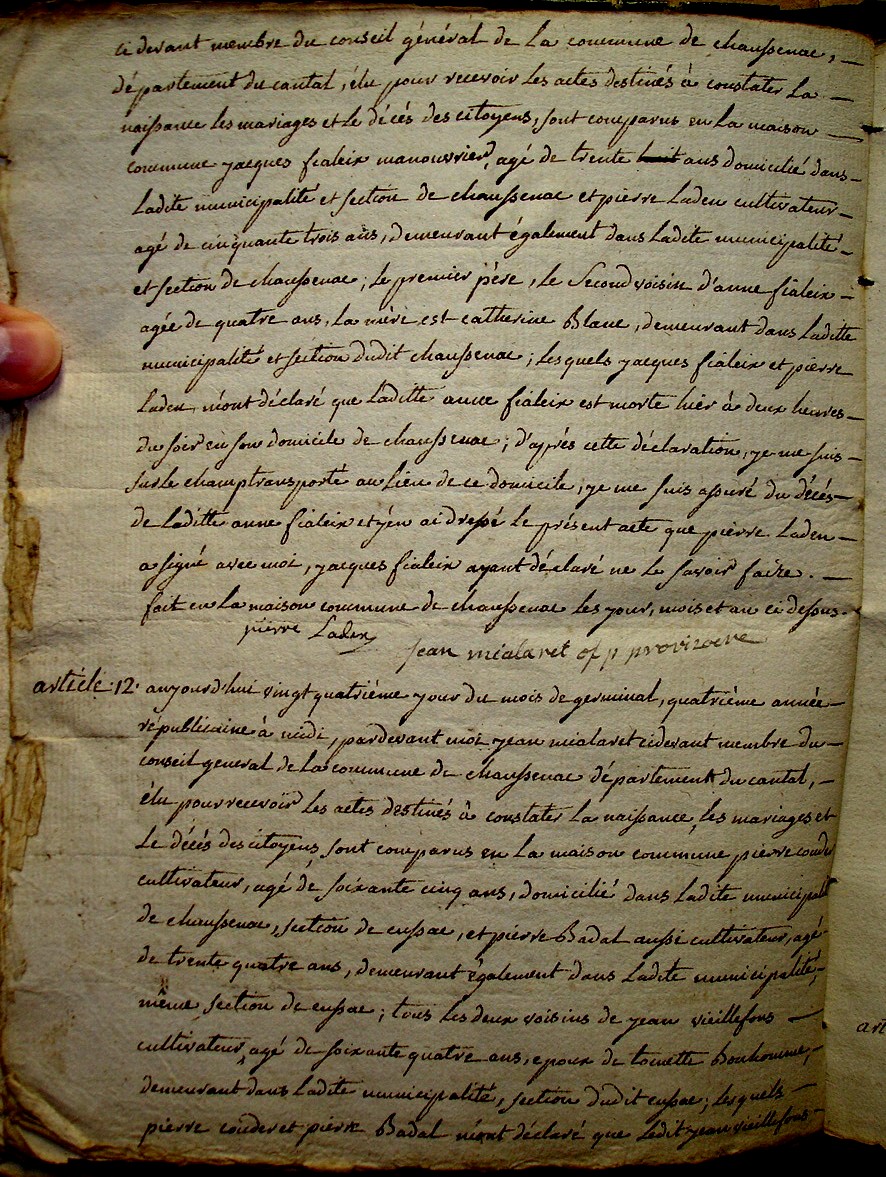 ci devant membre du conseil général de la commune de chaussenac, —
département du cantal, élu pour recevoir les actes destinés à constater la —
naissance les mariages et le décès des citoyens, sont comparus en la maison —
commune jacques fialeix manouvrier, agé de trente huit ans domicilié dans —
ladite municipalité et section de chaussenac et pierre laden cultivateur —
agé de cinquante trois ans, demeurant également dans ladite municipalité —
et section de chaussenac; le premier père, le second voisin d'anne fialeix —
agée de quatre ans, la mère est catherine Blanc, demeurant dans laditte
municipalité et section dudit chaussenac; lesquels jacques fialeix et pierre
laden, m'ont déclaré que laditte anne fialeix est morte hier à deux heures —
du soir en son domicile de chaussenac; d'après cette déclaration, je me suis —
sur le champ transporté au lieu de ce domicile, je me suis assuré du décès —
de laditte anne fialeix et j'en ai dressé le présent acte que pierre laden —
a signé avec moi, jacques fialeix ayant déclaré ne le savoir faire. —
fait en la maison commune de chaussenac les jour, mois et an ci dessus.
pierre Laden
jean mialaret of p provizoere
article 12. aujourd'hui vingt quatrième jour du mois de germinal, quatrième année —
républicaine à midi, pardevant moi jean mialaret cidevant membre du —
conseil general de la commune de chaussenac département du cantal, —
élu pour recevoir les actes destinés à constater la naissance, les mariages et
le décès des citoyens, sont comparus en la maison commune pierre couder
cultivateur, agé de soixante cinq ans, domicilié dans ladite municipalité
de chaussenac, section de cussac, et pierre Badal aussi cultivateur, agé
de trente quatre ans, demeurant également dans ladite municipalité,
même section de cussac; tous les deux voisins de jean vieillefons —
cultivateur, agé de soixante quatre ans, epoux de toinette Bonhomme, —
demeurant dans ladite municipalité, section dudit cussac; lesquels —
pierre couder et pierre Badal m'ont déclaré que ledit jean vieillefons —
art